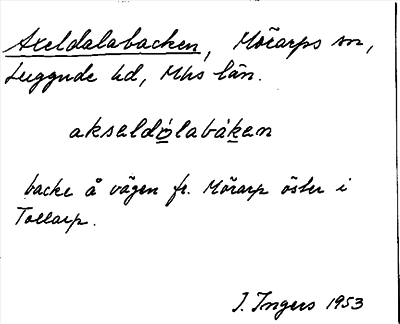 Axeldalabacken, Mörarps sn,
Luggude hd, Mhs län.
akseldòlabàken
backe å vägen fr. Mörarp öster i
Tollarp.
I. Ingers 1953